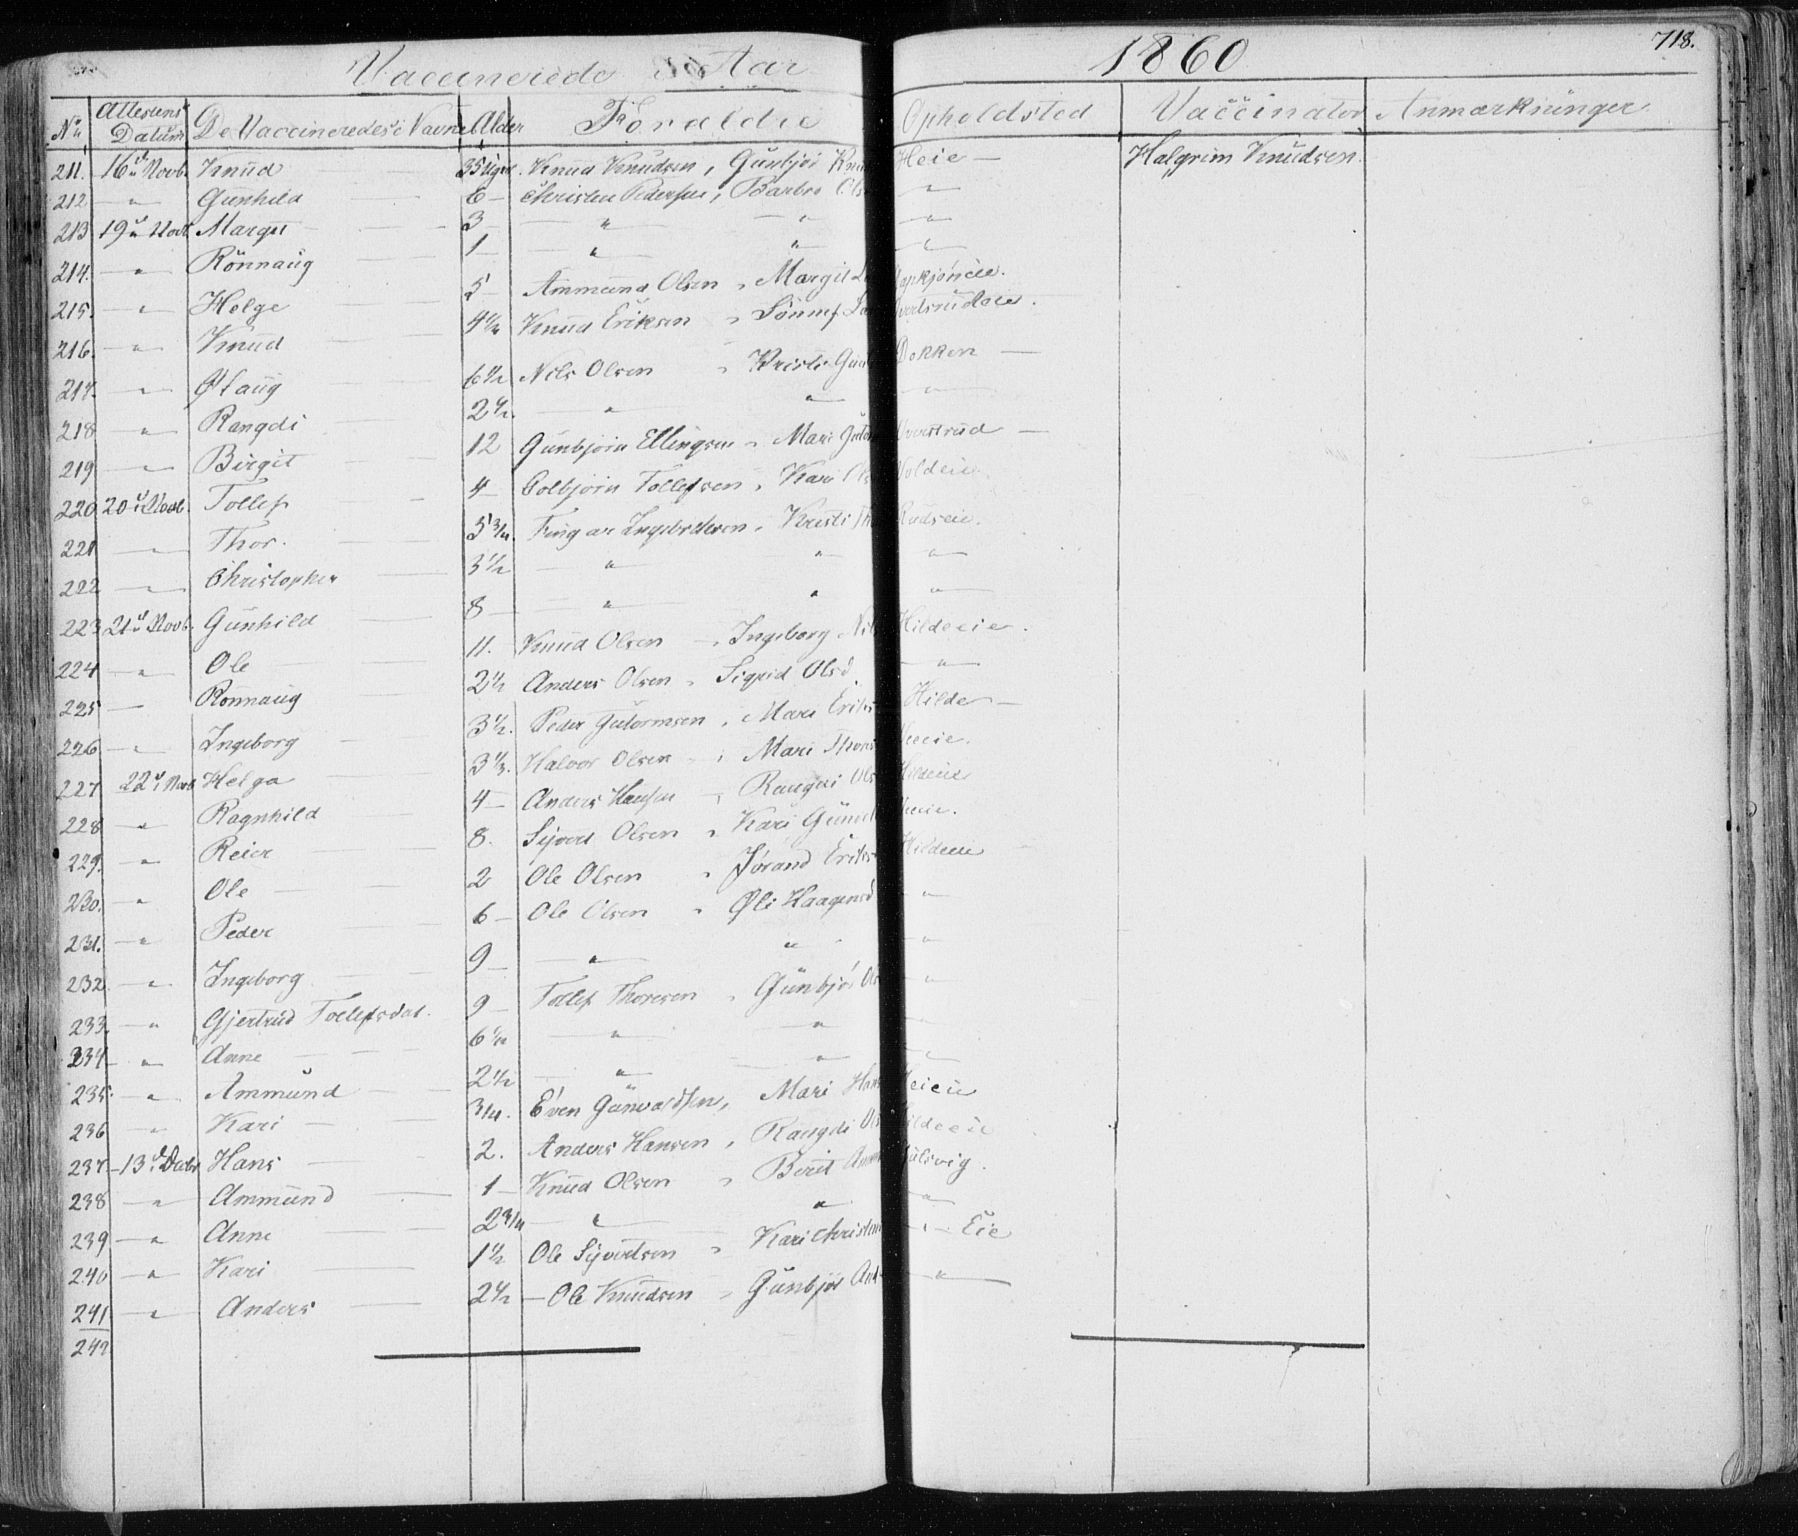 Vaccinerede i Aar 1860 718.
No Attestens Datum De Vaccineredes Navne Alder Forældre Opholdsted Vaccinator Anmærkninger
211. 16d Novb. Knud 35 Uger. Knud Knudsen, Gunbjør Knu Heie — Halgrim Knudsen
212 — " Gunhild 6 — Christen Pedersen, Barbro Ols — " —
213 19d Novb Margit 3 — " — " — " —
214. — " Rönnaug 1 — " — " — " —
215. — " Helge 5 Ammund Olsen " Margit
216. — " Knud 4½ Knud Eriksen " Sönnef
217. — " Olaug 6½ Nils Olsen " Kristi Gun Dokken —
218 — " Rangdi 2½. — " — " — " —
219 — " Birgit 12 Gunbjørn Ellingsen " Mari Gutor —
220 20d Novb. Tollef 4 — Colbjørn Tollefsen, Kari Ols Voldeie
221 — " Thor. 5¾. Fingar Ingebretsen, Kristi Th Rudseie.
222 — " Christopher 3½ — " — " — " —
223 21d Novb. Gunhild 8 — " — " — " —
224 — " Ole 11. Knud Olsen — " Ingeborg Nils Hildeeie.
225 — " Ronnaug 2½ Anders Olsen " Sigrid Olsd. — " —
226 — " Ingeborg 3½. Peder Gutormsen, Mari Eriks Hilde —
227 22d Novb Helga 3⅓. Halvor Olsen — ; Mari Thors
228 — " Ragnhild 4 — Anders Hansen — , Rangdi Ols Hildeeie
229. — " Reier 8. Syvert Olsen " Kari Gunul
230. — " Ole 2 Ole Olsen " Jórand Eriks Hildeeie
231. — " Peder 6 — Ole Olsen " Øli Haagensd — " —
232 — " Ingeborg 9 — " — " — " —
233 — " Gjertrud Tollefsdat. 9 — Tollef Thoresen " Gunbjør Ols — " —
234 — " Anne 6½ — " — "
235. — " Ammund 2½ — " — " — " —
236 — " Kari ¾. Even Gunvaldsen, Mari Hans Heieie
237. 13d Decbr Hans 2. Anders Hansen, Rangdi Ols Hildeeie
238 — " Ammund 1 — Knud Olsen " Berit Amm Gulsvig.
239 — " Anne 2¾ — " — " — " —
240 — " Kari 1½ Ole Syvertsen " Kari Christen — " — Eie
241 — " Anders 2½ — Ole Knudsen " Gunbjør And — " —
242